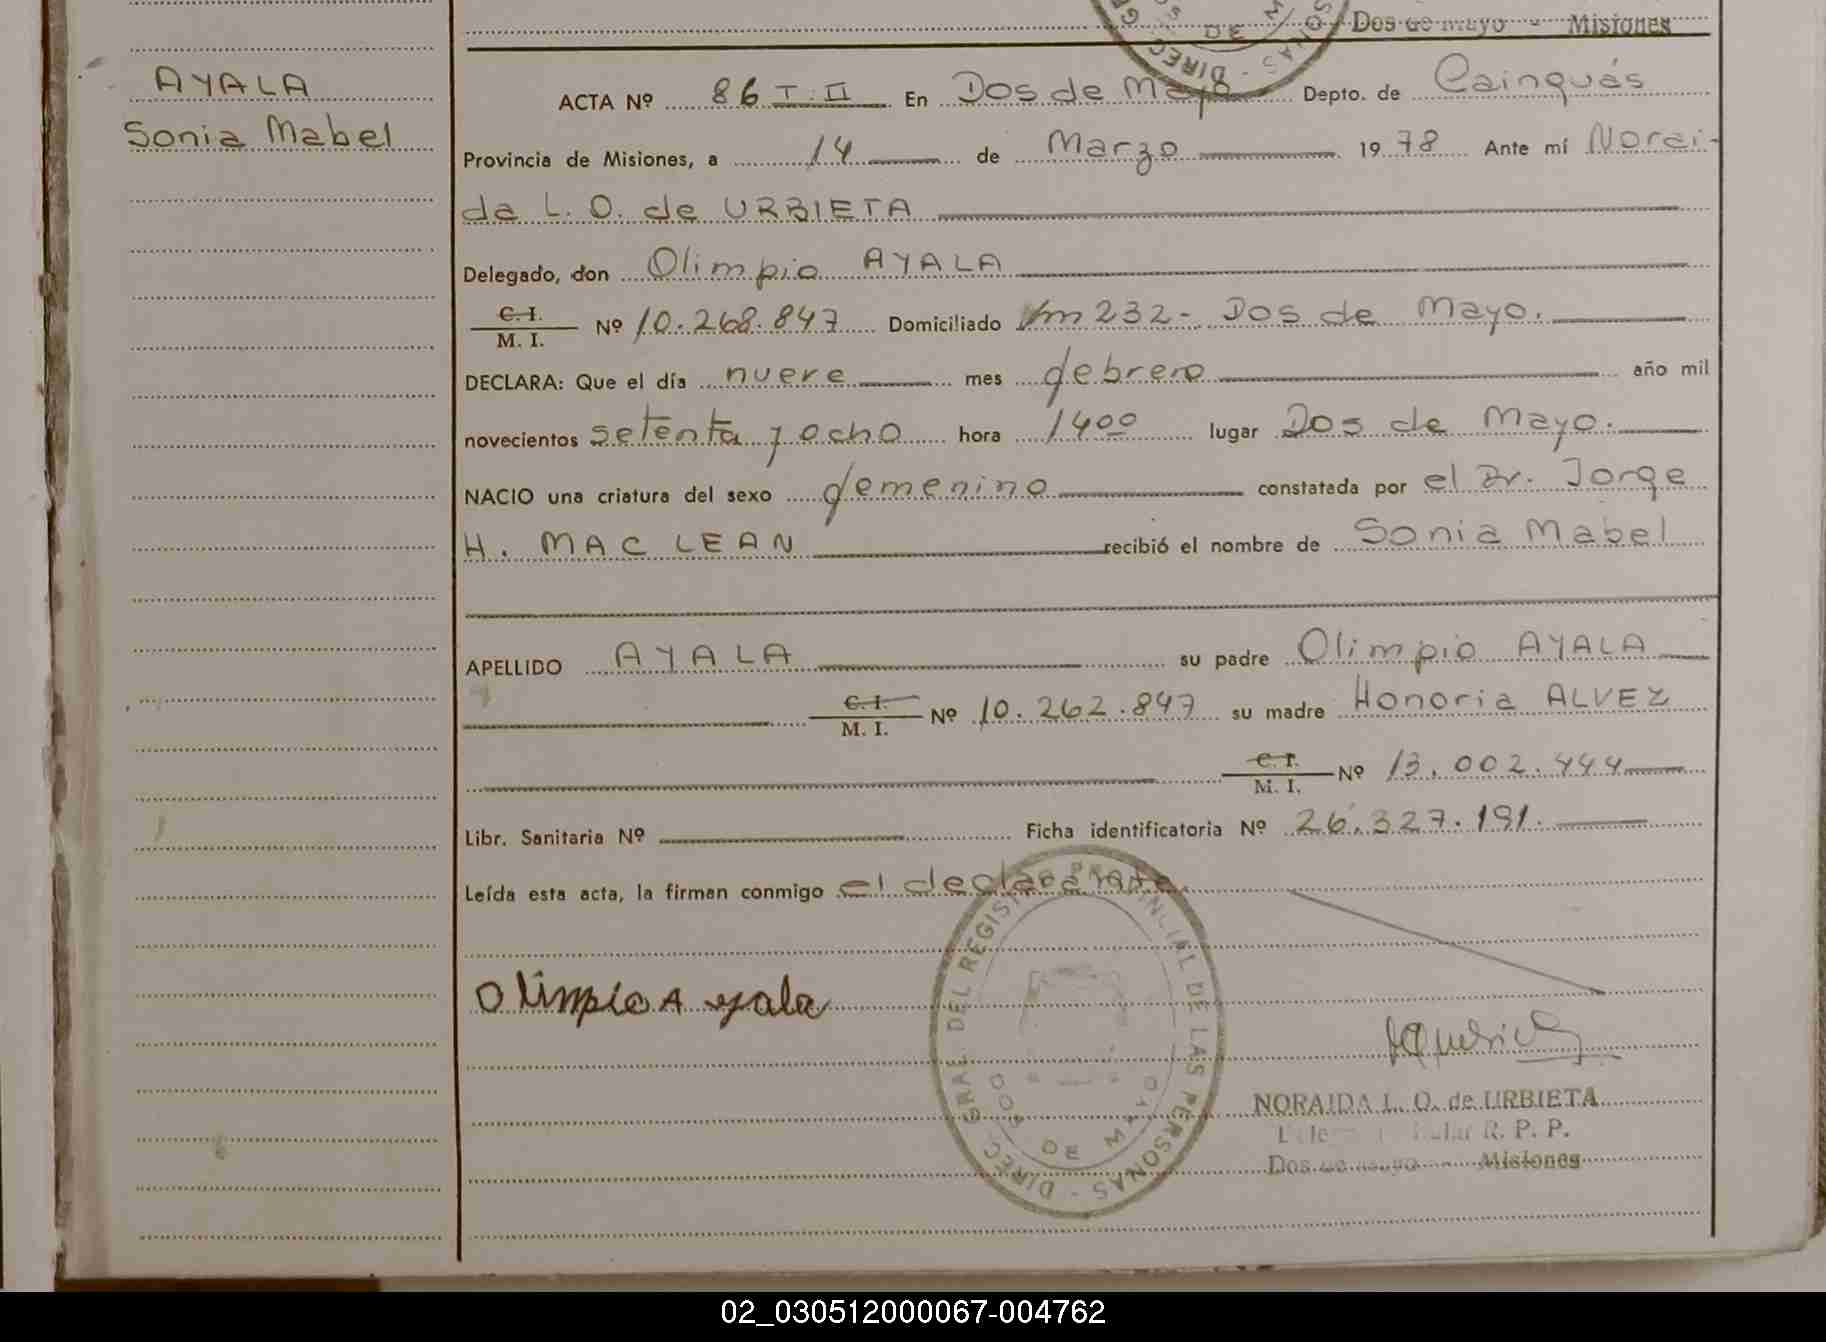 Dos de Mayo - Misiones
AYALA
Sonia Mabel
ACTA Nº 86 T. II En Dos de Mayo Depto. de Cainguás
Provincia de Misiones, a 14 de Marzo 1978 Ante mí Norai-
da L. O. de URBIETA
Delegado, don Olimpio AYALA
C. I.
M. I. Nº 10.268.847 Domiciliado Km 232- Dos de Mayo.
DECLARA: Que el día nueve mes febrero año mil
novecientos setenta y ocho hora 14 00 lugar Dos de Mayo.
NACIO una criatura del sexo femenino constatada por el Dr. Jorge
H. MAC LEAN recibió el nombre de Sonia Mabel
APELLIDO AYALA su padre Olimpio AYALA
C. I.
M. I. Nº 10.262.847 su madre Honoria ALVEZ
C. I.
M. I. Nº 13.002.444
Libr. Sanitaria Nº Ficha identificatoria Nº 26.327.191.
Leída esta acta, la firman conmigo el declarante
Olimpio Ayala
DIREC. GRAL. DEL REGISTRO PROVINCIAL DE LAS PERSONAS
DOS DE MAYO
NORAIDA L. O. de URBIETA
R. P. P.
Dos de Mayo - Misiones
02_030512000067-004762